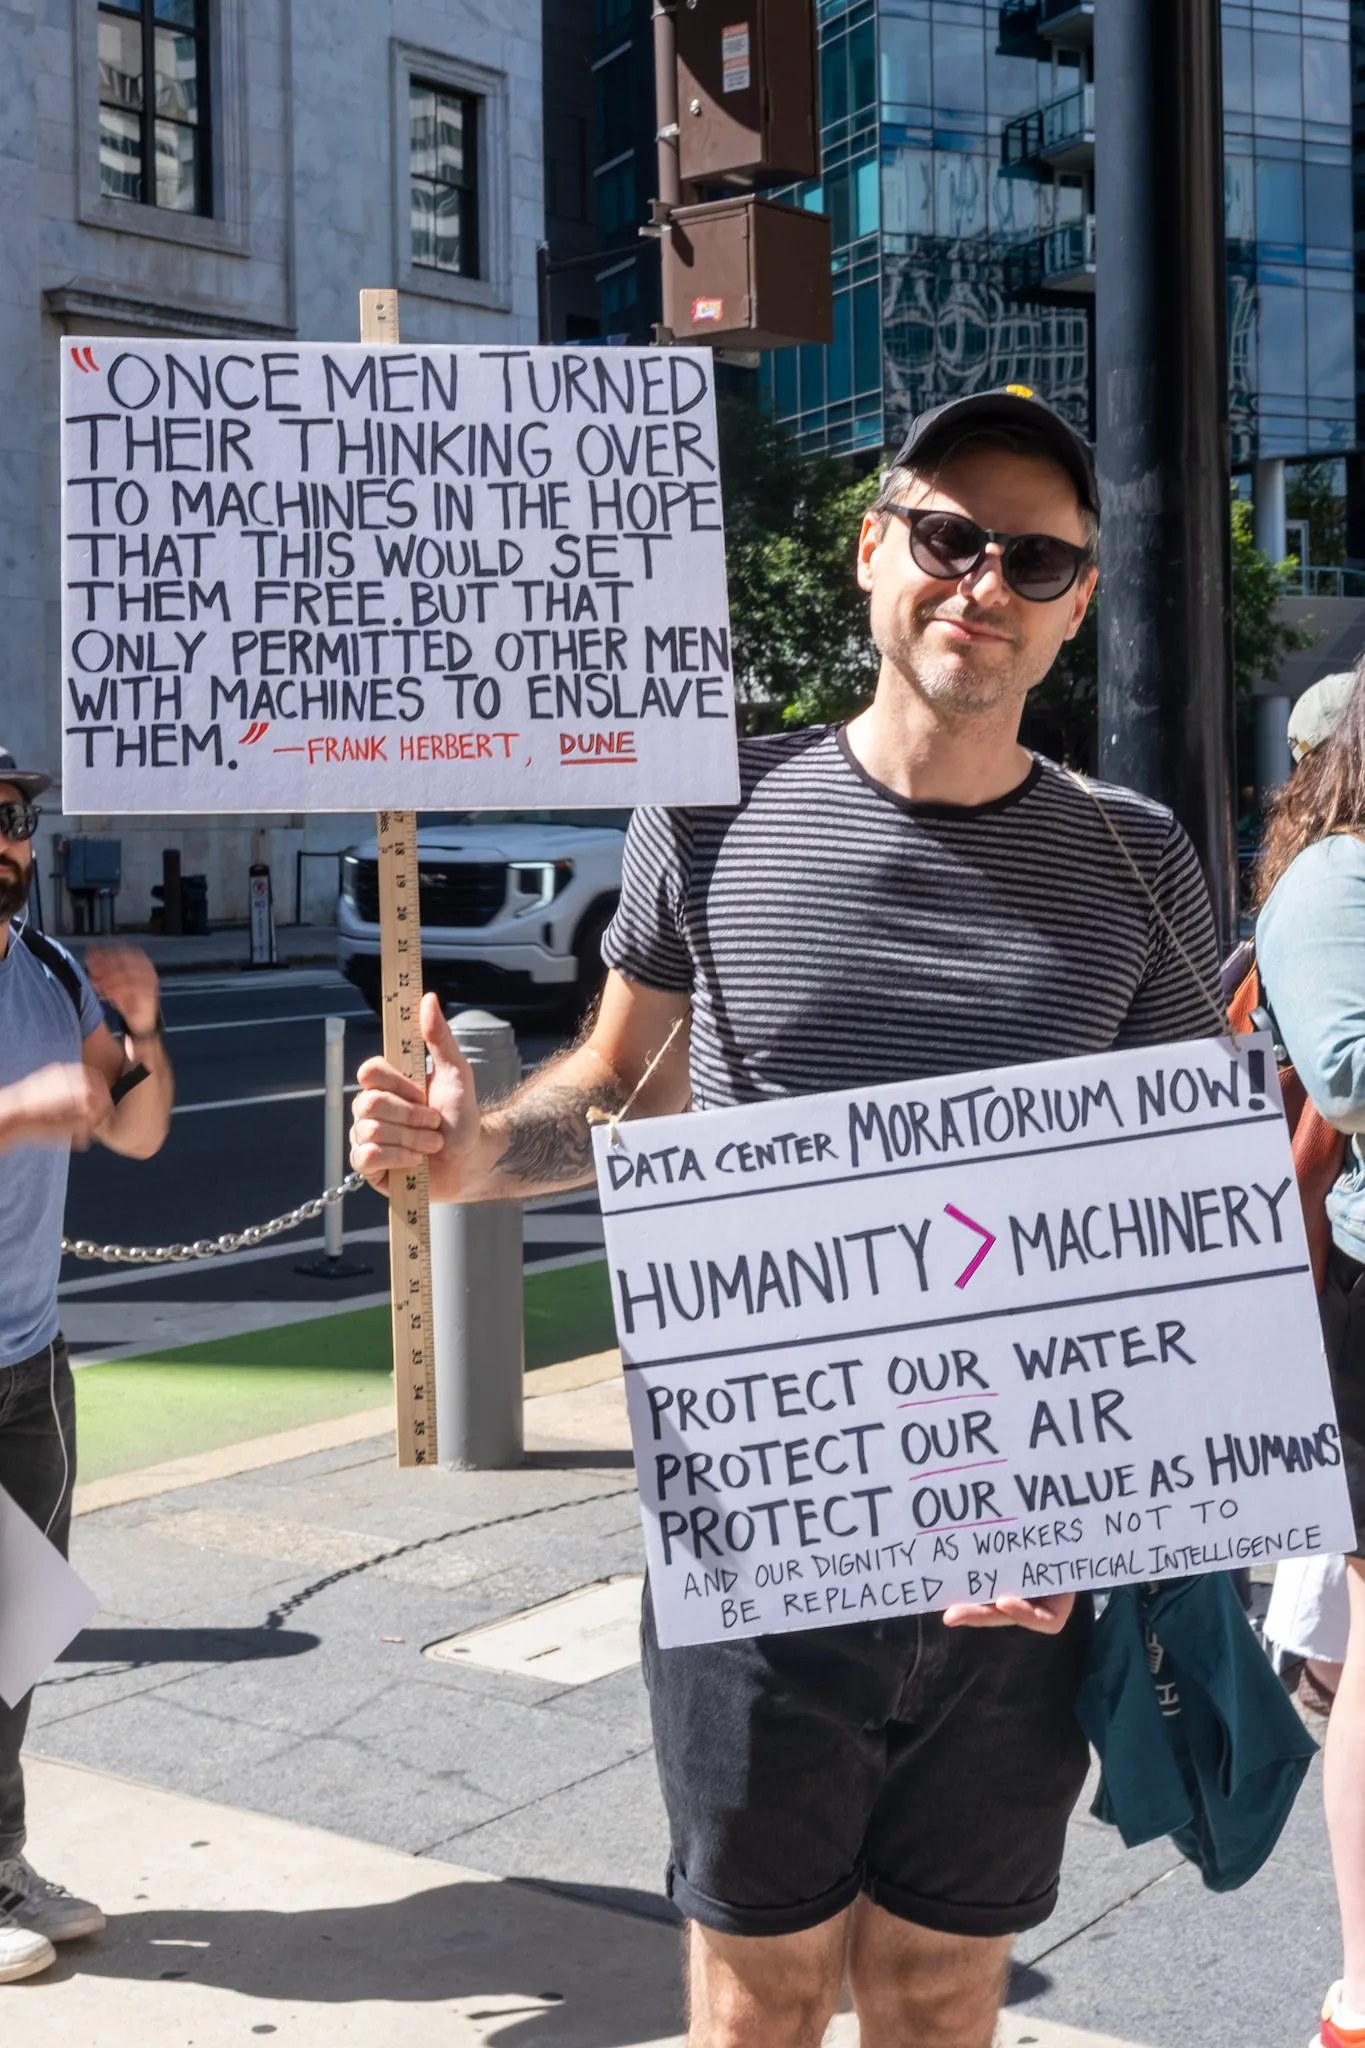 "ONCE MEN TURNED
THEIR THINKING OVER
TO MACHINES IN THE HOPE
THAT THIS WOULD SET
THEM FREE. BUT THAT
ONLY PERMITTED OTHER MEN
WITH MACHINES TO ENSLAVE
THEM." —FRANK HERBERT, DUNE
17
18
19
20
21
22
23
24
28
29
30
31
32
33
34
35
36
DATA CENTER MORATORIUM NOW!
HUMANITY > MACHINERY
PROTECT OUR WATER
PROTECT OUR AIR
PROTECT OUR VALUE AS HUMANS
AND OUR DIGNITY AS WORKERS NOT TO
BE REPLACED BY ARTIFICIAL INTELLIGENCE